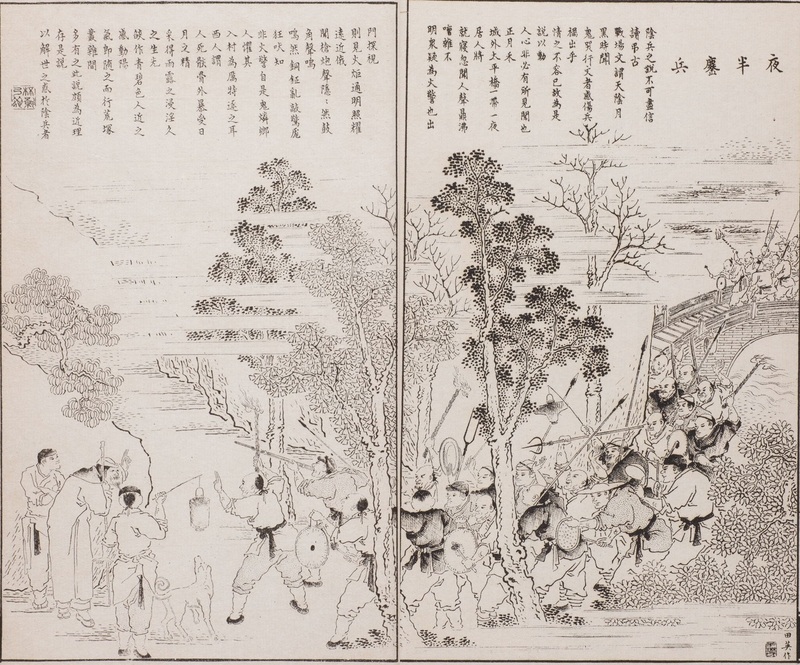 夜半鏖兵
陰兵之說不可盡信
讀弔古
戰場文謂天陰月
黑時聞
鬼哭行文者感傷兵
禍出乎
情之不容已故為是
說以動
人心非必有所見聞也
正月禾
城外太平橋一帶一夜
居人將
就寢忽聞人聲鼎沸
嘈雜不
明衆疑為火警也出
門探視
則見火炬通明照耀
遠近俄
聞槍炮聲隱隱然鼓
角聲嗚
嗚然銅鉦亂敲驚尨
狂吠知
非火警自是鬼燐鄉
人懼其
入村為厲特逐之耳
西人謂
人死骸骨外暴受日
月之精
采得雨露之浸淫久
之生光
燄作青碧色人近之
動
氣即隨之而行荒塚
叢雜間
多有之此說頗為近理
存是說
以解世之惑於陰兵者
田英作